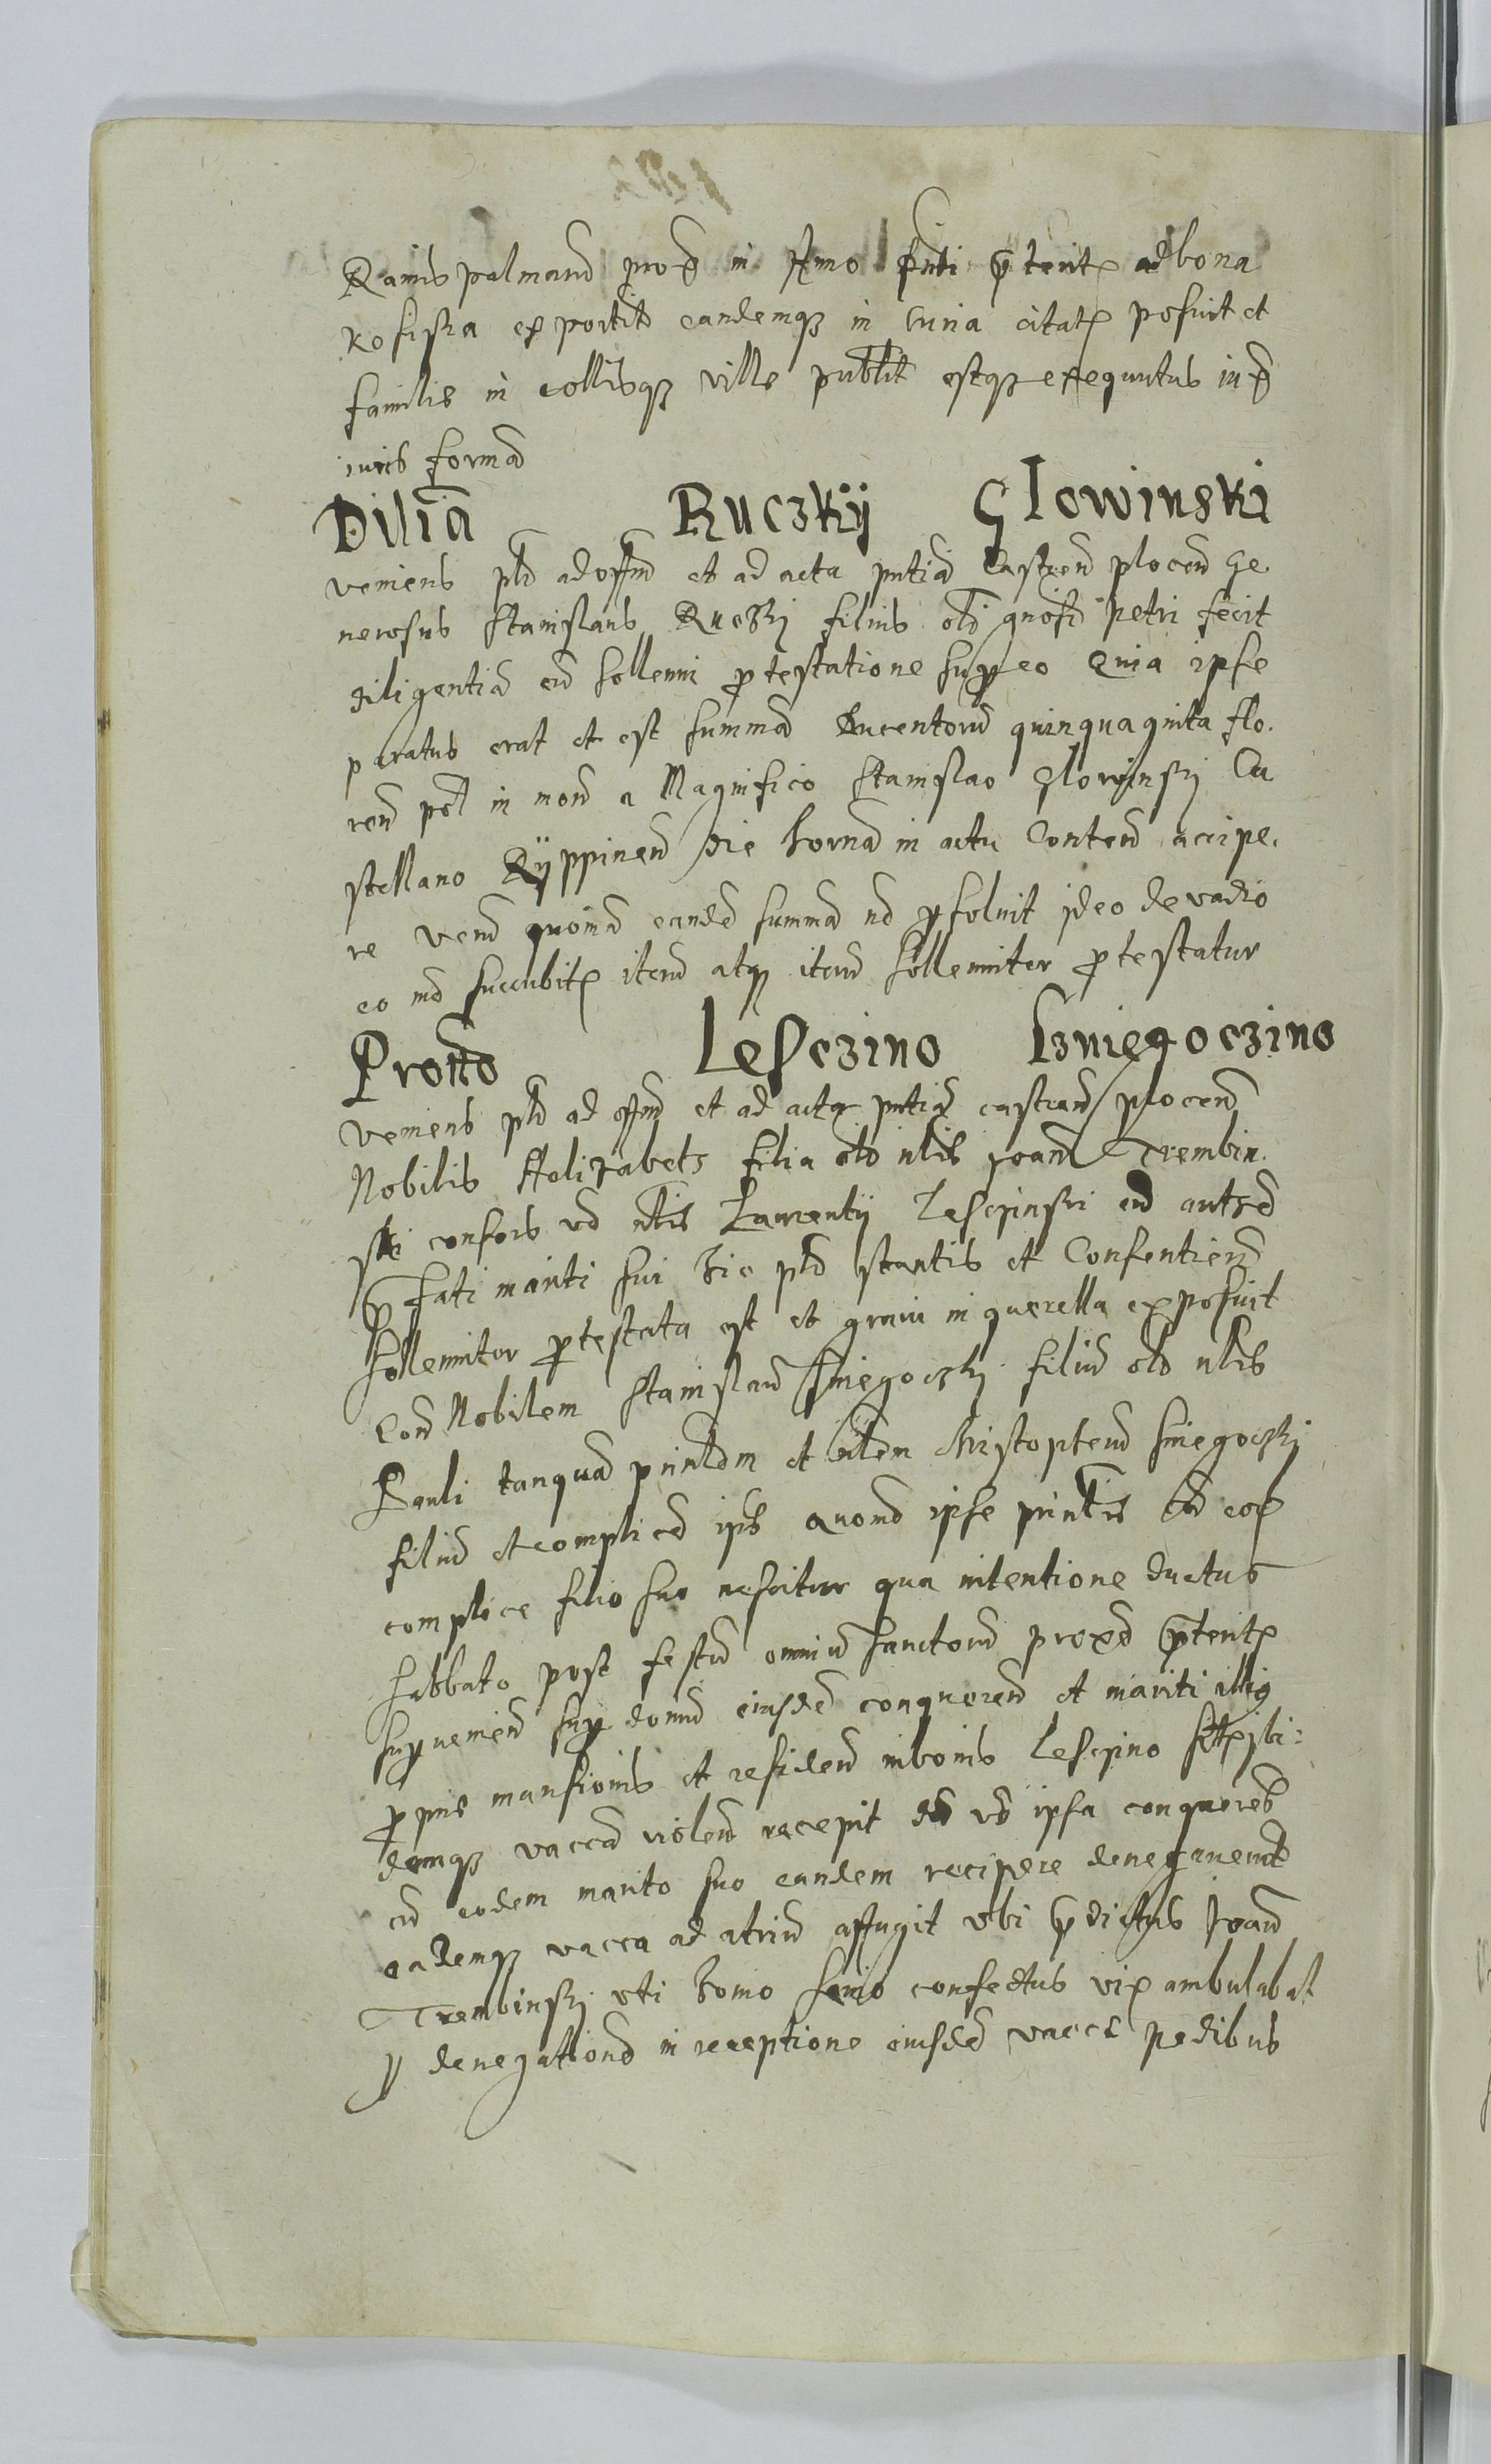 Ramis palmarum proxe in Anno pnti pterito ad bona
Rosiska exportit eandemq in Curia citati posuit et
familie in collisq ville publit estq exequutus iux
iuris forma
Dilia Ruczkij Glowinski
veniens pld ad offm et ad acta pntia Castren plocen Ge
nerosus Stanislaus Ruczkj filius old gnosi petri fecit
diligentia cu sollenni ptestatione sup eo Quia ipse
paratus erat et est summa ducentoru quinquaginta flo.
ren pol in mon a Magnifico Stanislao Glowinskj Ca
stellano Ryppinen die horna in actu Conten accipe.
re veru quoniā eandē summā nō psoluit ideo de vadio
eo nō succubit iteru atq iteru sollenniter ptestatur
Protto Lesczino Szniegoczino
Veniens pld ad offm et ad acta pntia castren plocen
Nobilis Helizabets filia old nlis Joann Trembin.
ski consors vo nlis Laurentij Lescjnski cu auth
pfati mariti sui hic pld stantis et Consentien
sollenniter ptestata est et graui in querella exposuit
Con Nobilem Stanislau Sniegoczkj filiu old nlis
Pauli tanqua prinlem et nlem Christopheru Sniegoczkj
filiu et complice ips Quomo ipse prinlis cu eo
complice filio suo nescitur qua intentione ductus
sabbato post festu omniu sanctoru proxe pterito
supuenien sup domu eiusde conqueren et mariti illig
pprie mansionis et residen in bonis Lescjno ibi:
demq vacca violen recepit du vo ipsa conqueren
cu eodem marito suo eandem recipere denegauerit
eademq vacca ad atriu affugit vbi pdictus Joann
Trembinskj vti homo senio confectus vix ambulabat
p denegatione in receptione eiusde vacce pedibus